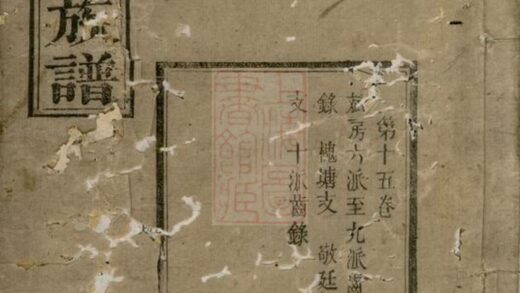 族譜
第十五卷
房六派至九派齒
錄 槐塘支 敬廷
支 十派齒錄